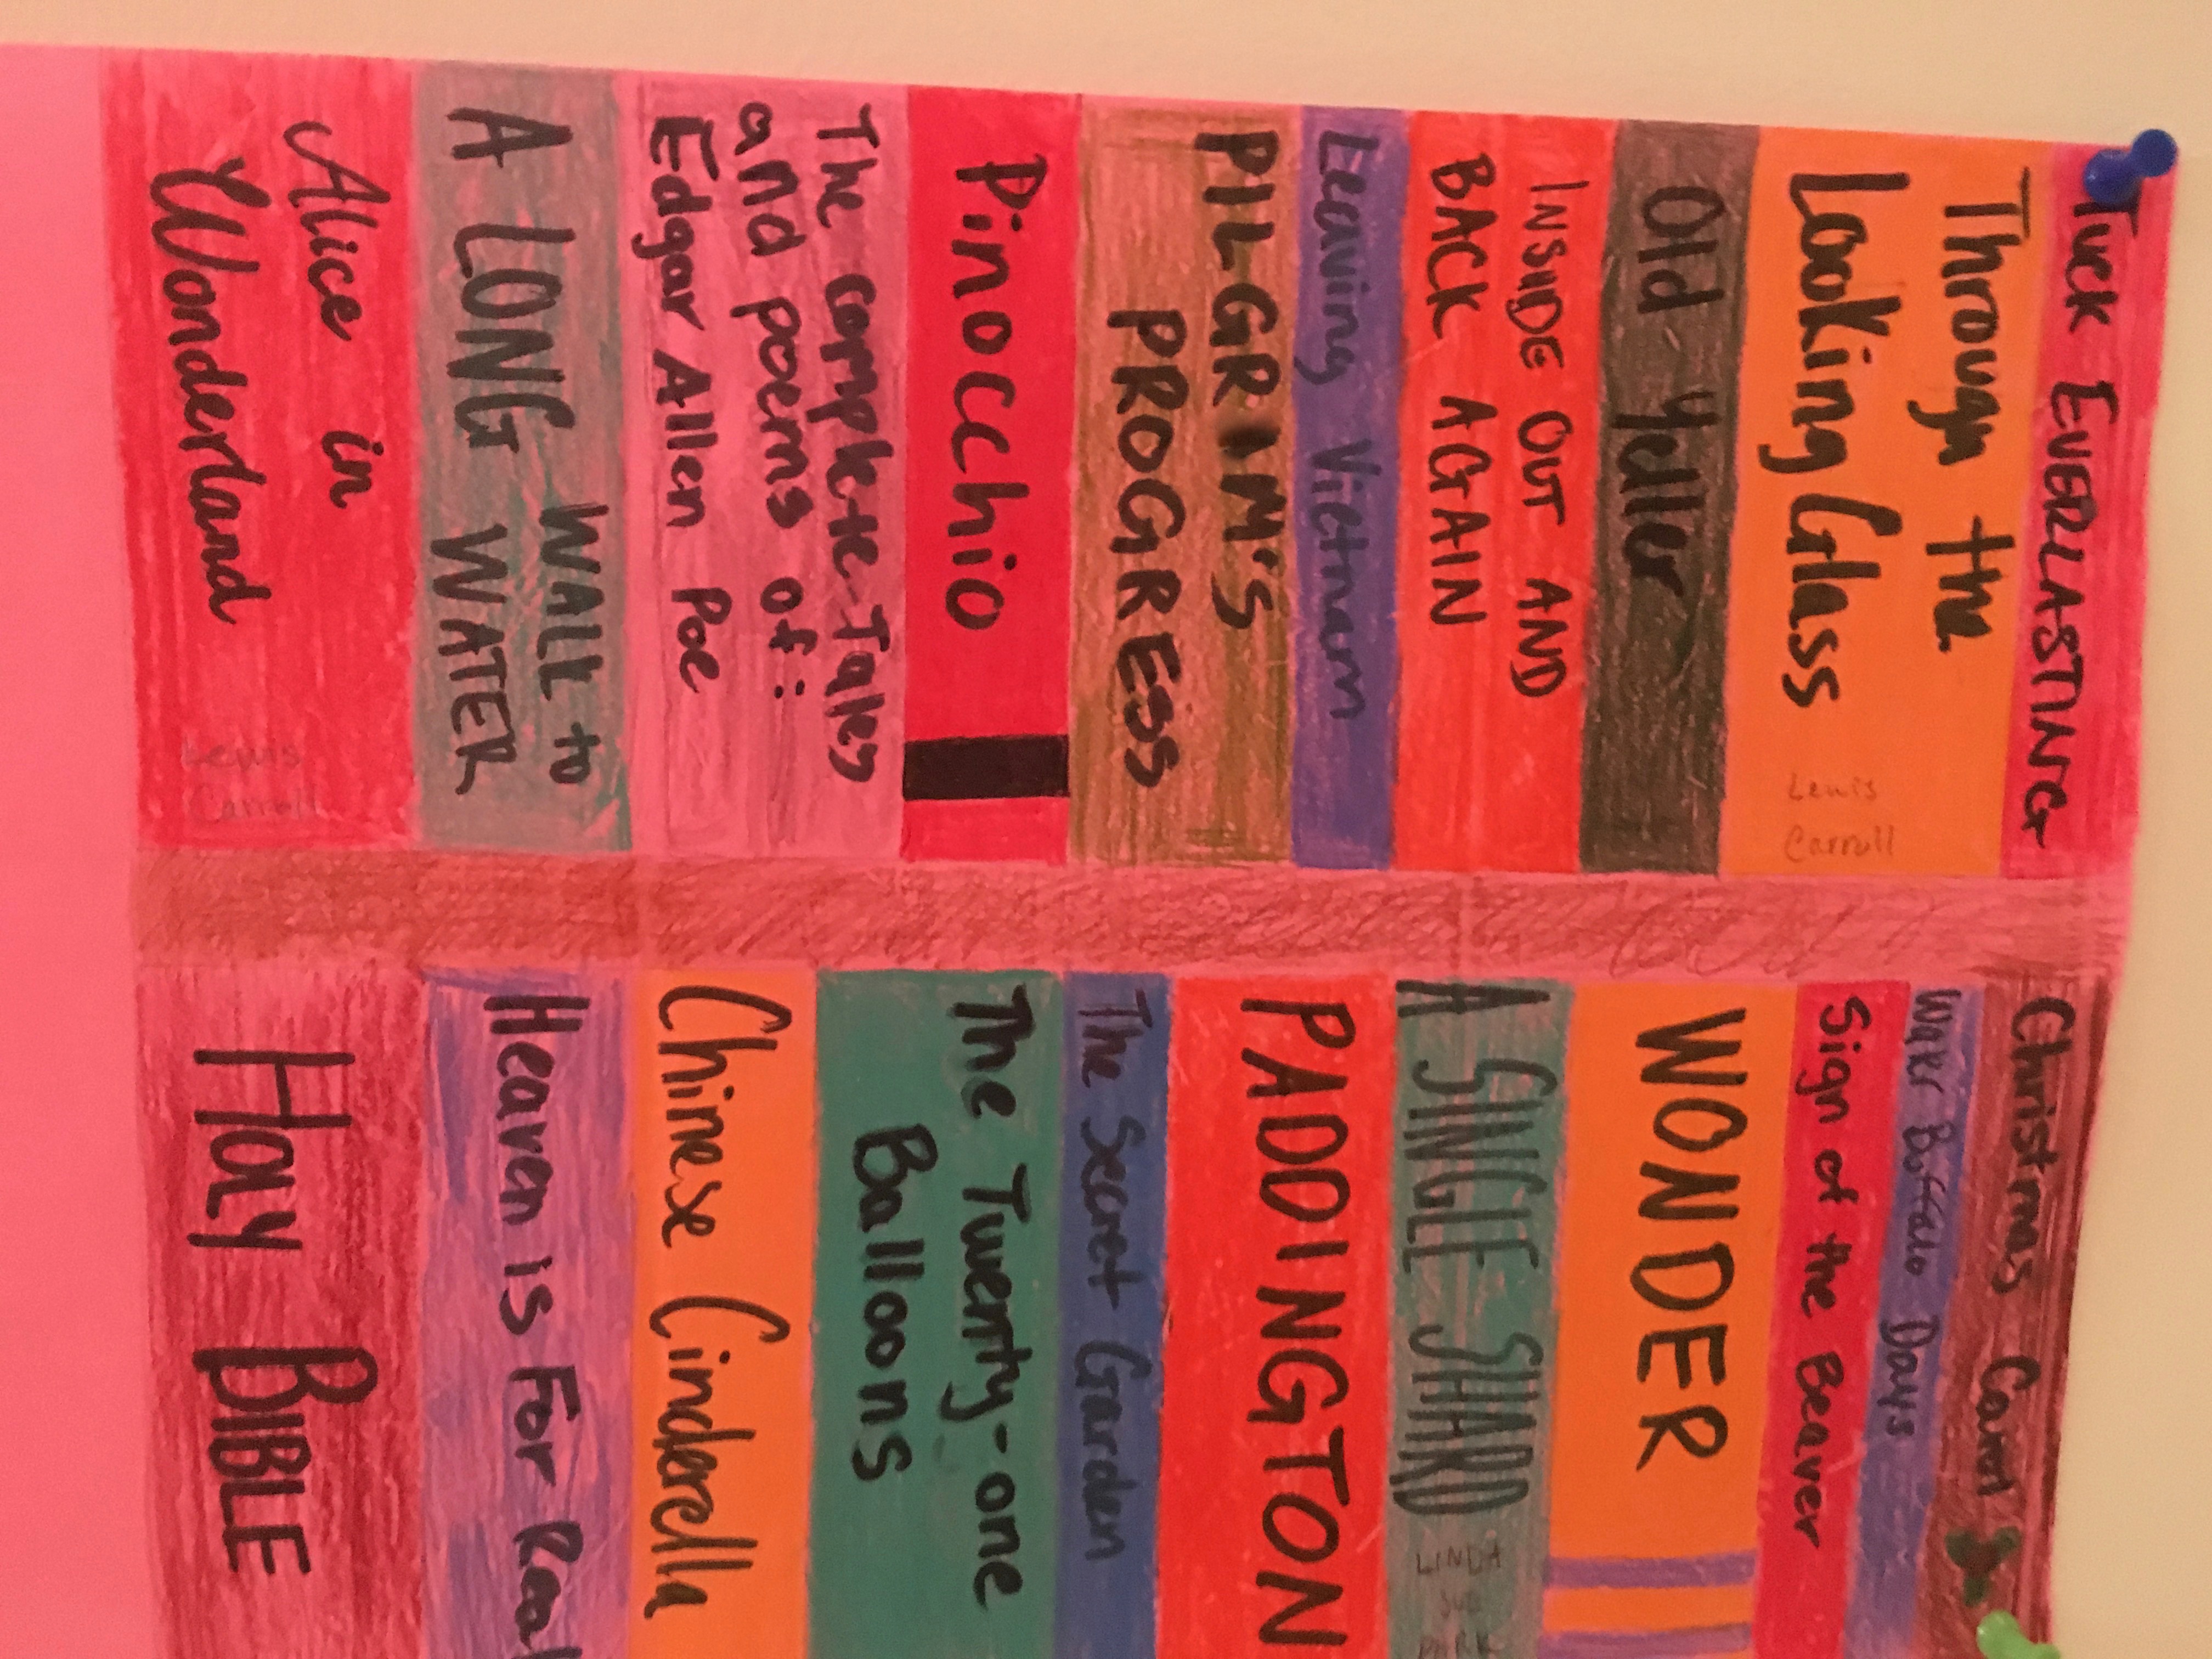 Alice in
Wonderland
Lewis
Carroll
A LONG WALK to
WATER
The complete Tales
and poems of:
Edgar Allen Poe
Pinocchio
PILGRIM'S
PROGRESS
Leaving Vietnam
INSIDE OUT AND
BACK AGAIN
Old Yeller
Through the
Looking Glass
Lewis
Carroll
TUCK EVERLASTING
HOLY BIBLE
Heaven is For Real
Chinese Cinderella
The Twenty-one
Balloons
The Secret Garden
PADDINGTON
A SINGLE SHARD
LINDA
SUE
PARK
WONDER
Sign of the Beaver
Water Buffalo Days
Christmas Carol